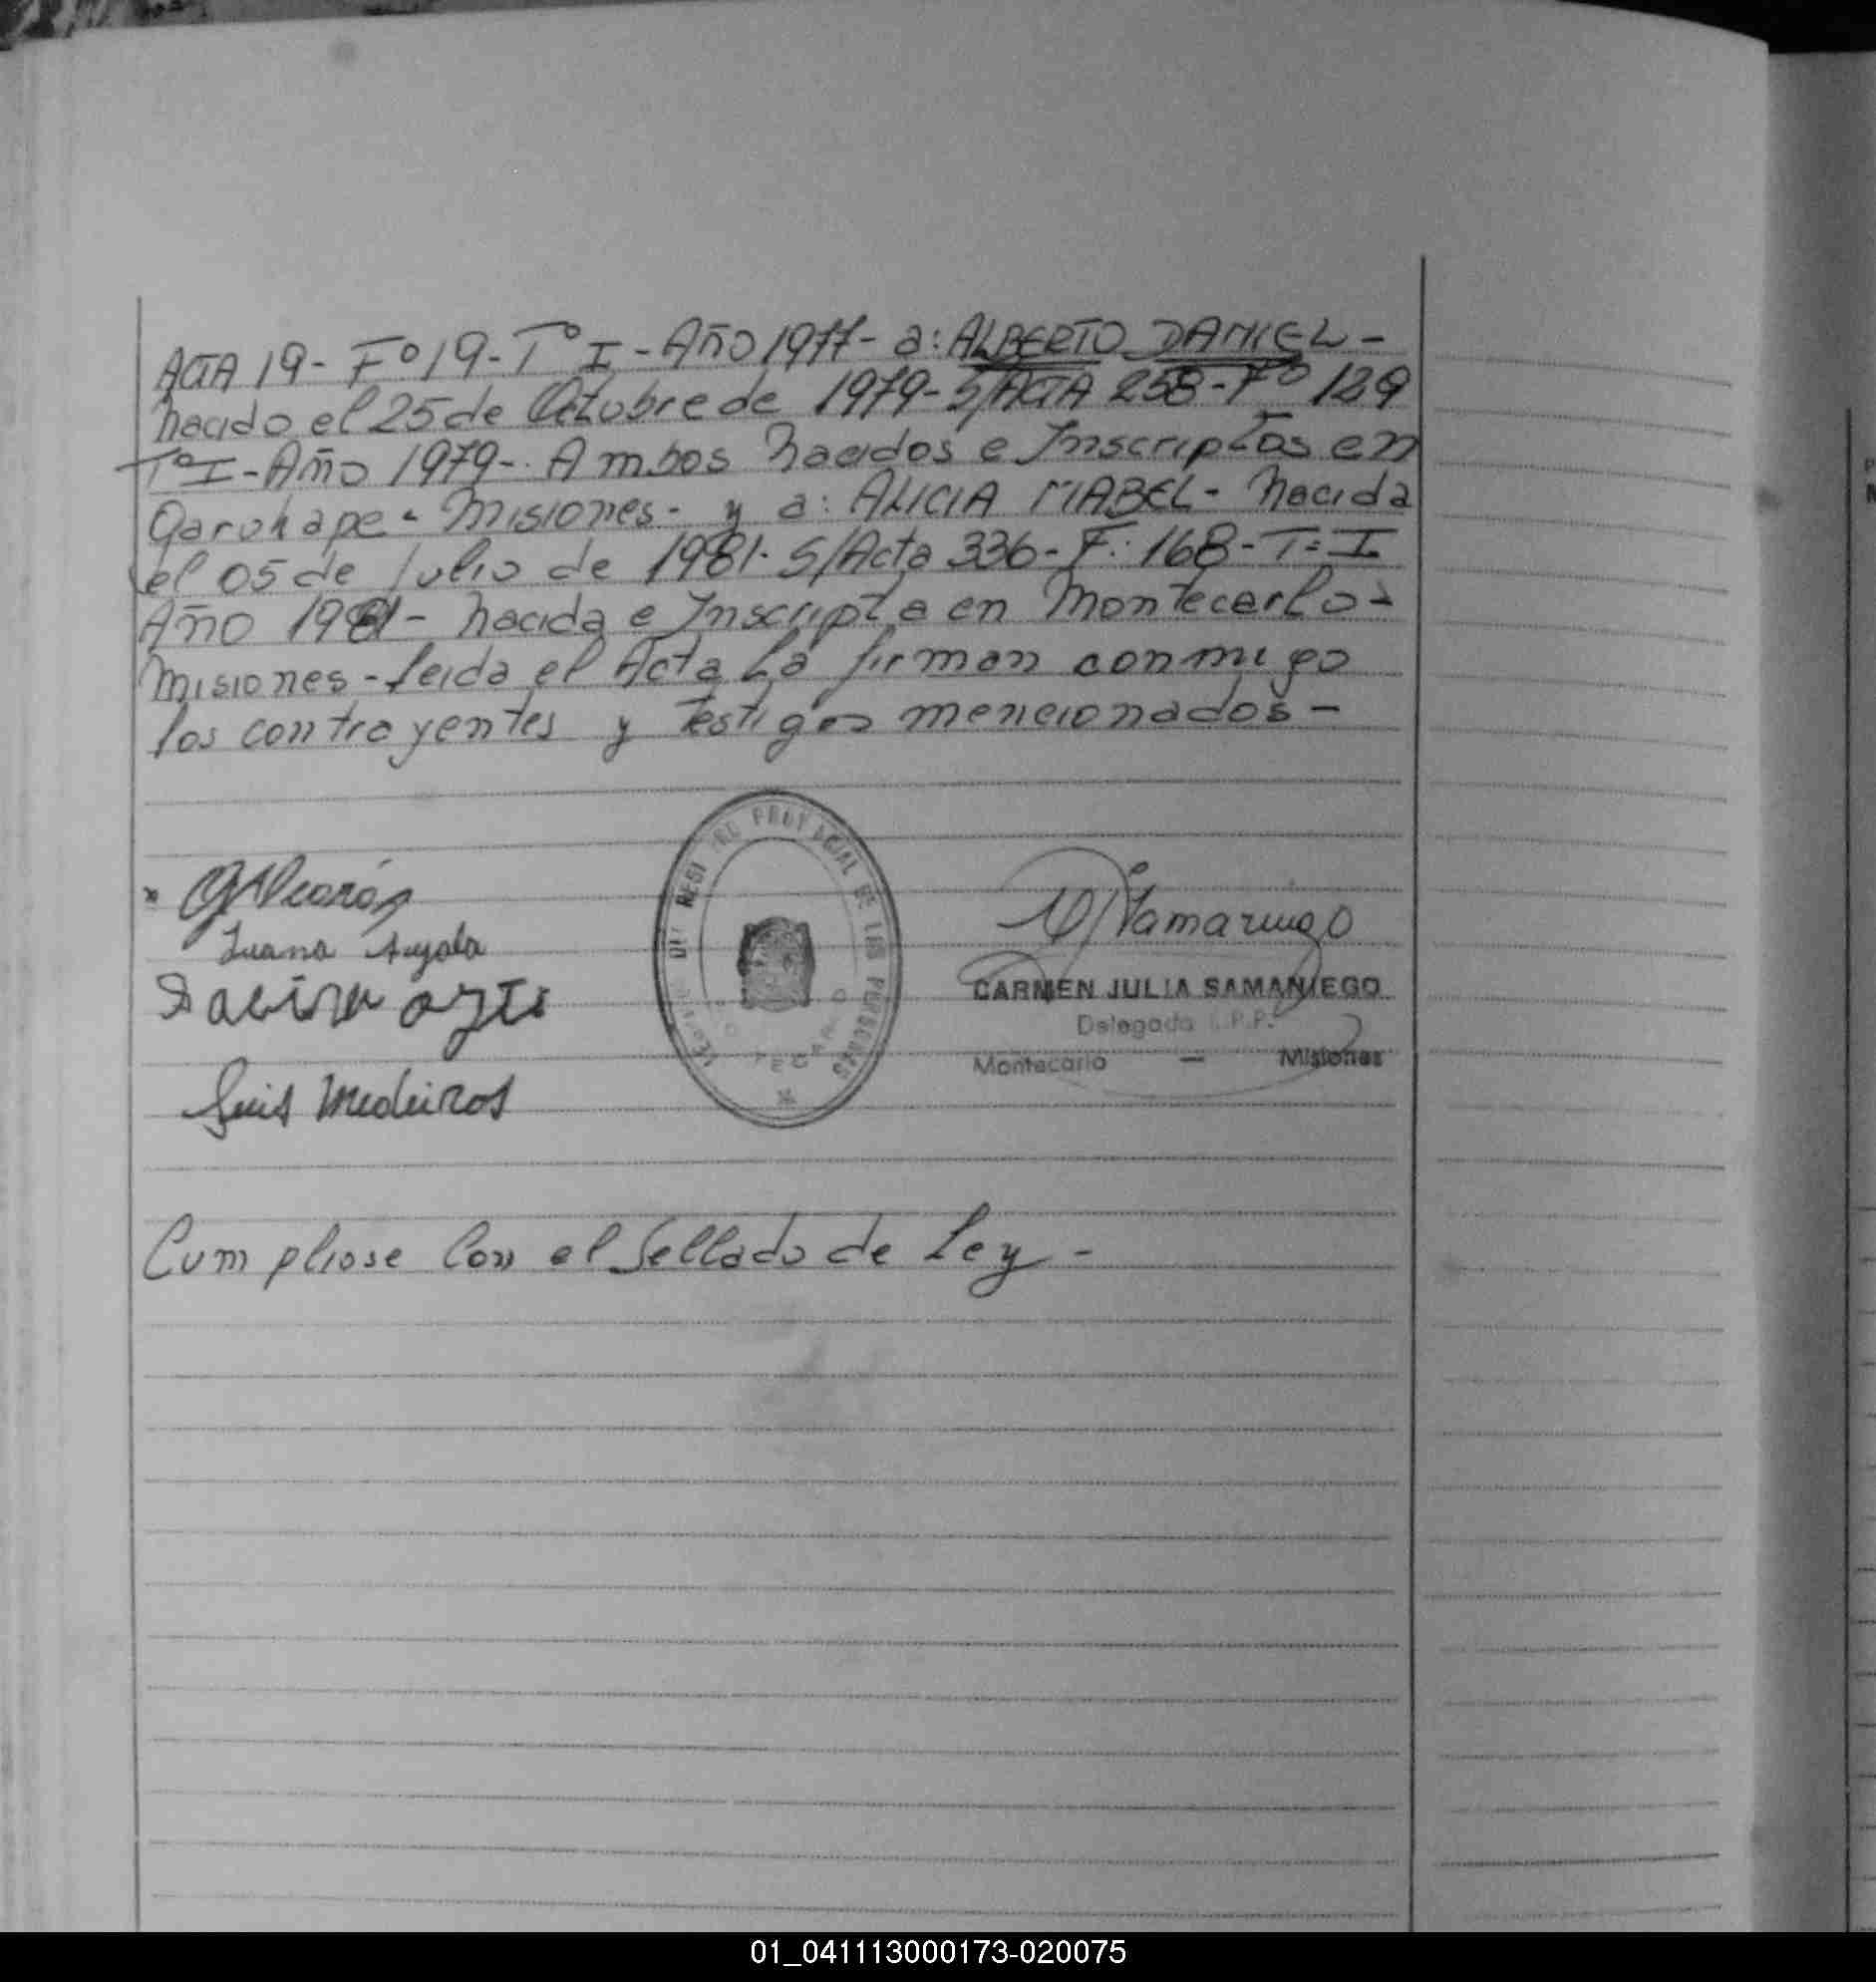 ACTA 19- Fº 19- Tº I - Año 1977- a: ALBERTO DANIEL-
nacido el 25 de Octubre de 1979- S/ACTA 258- Fº 129
Tº I - Año 1979-. Ambos nacidos e Inscriptos en
Garuhape - Misiones- y a: ALICIA MABEL- nacida
el 05 de Julio de 1981- S/Acta 336- F: 168- T= I
Año 1981- nacida e Inscripta en Montecarlo-
Misiones- leida el Acta La firman conmigo
los contrayentes y testigos mencionados-
Juana Ayala
Luis Medeiros
PROVINCIAL DE LAS PERSONAS
Samaniego
CARMEN JULIA SAMANIEGO
Delegada R.P.P.
Montecarlo — Misiones
Cumpliose Con el Sellado de Ley-
01_041113000173-020075